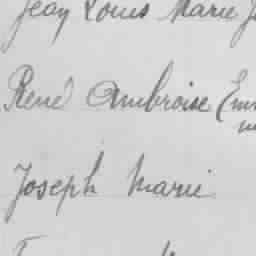 Jean Louis Marie
René Ambroise
Joseph Marie